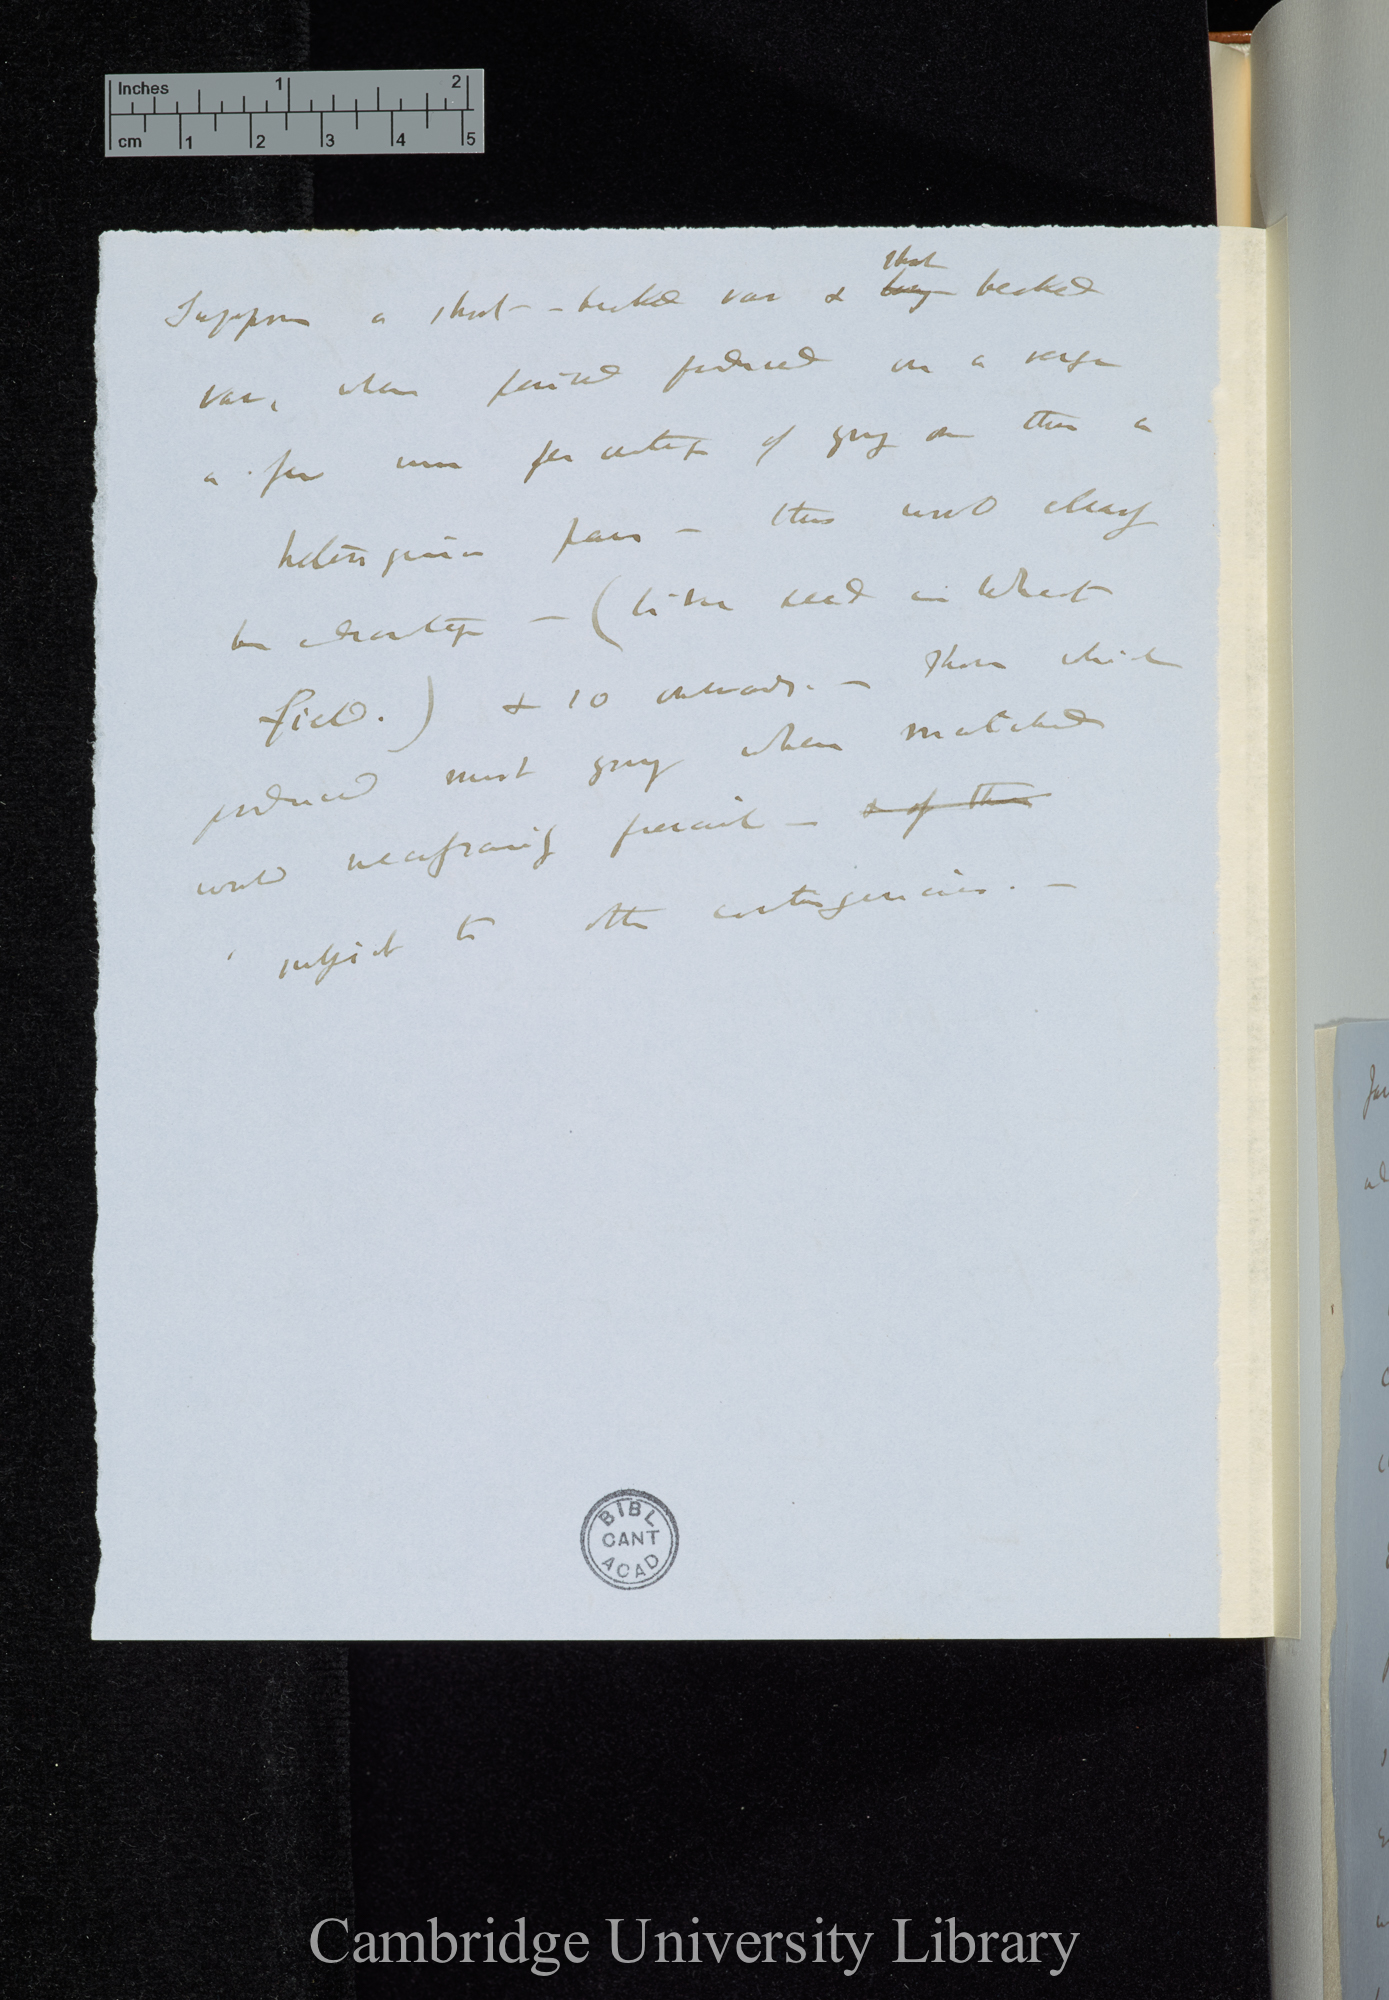 Inches 1 2
cm 1 2 3 4 5
short
Suppose a short-beaked var & long beaked
var, when paired produced on a verge
a few more per centage of young than a
heterogenous pair — this would clearly
be advantage — (like seed in Wheat
field.) & so onwards. — Those which
produced most young when matched
would necessarily prevail — & of these
subject to other contingencies. —
BIBL
CANT
ACAD
Cambridge University Library